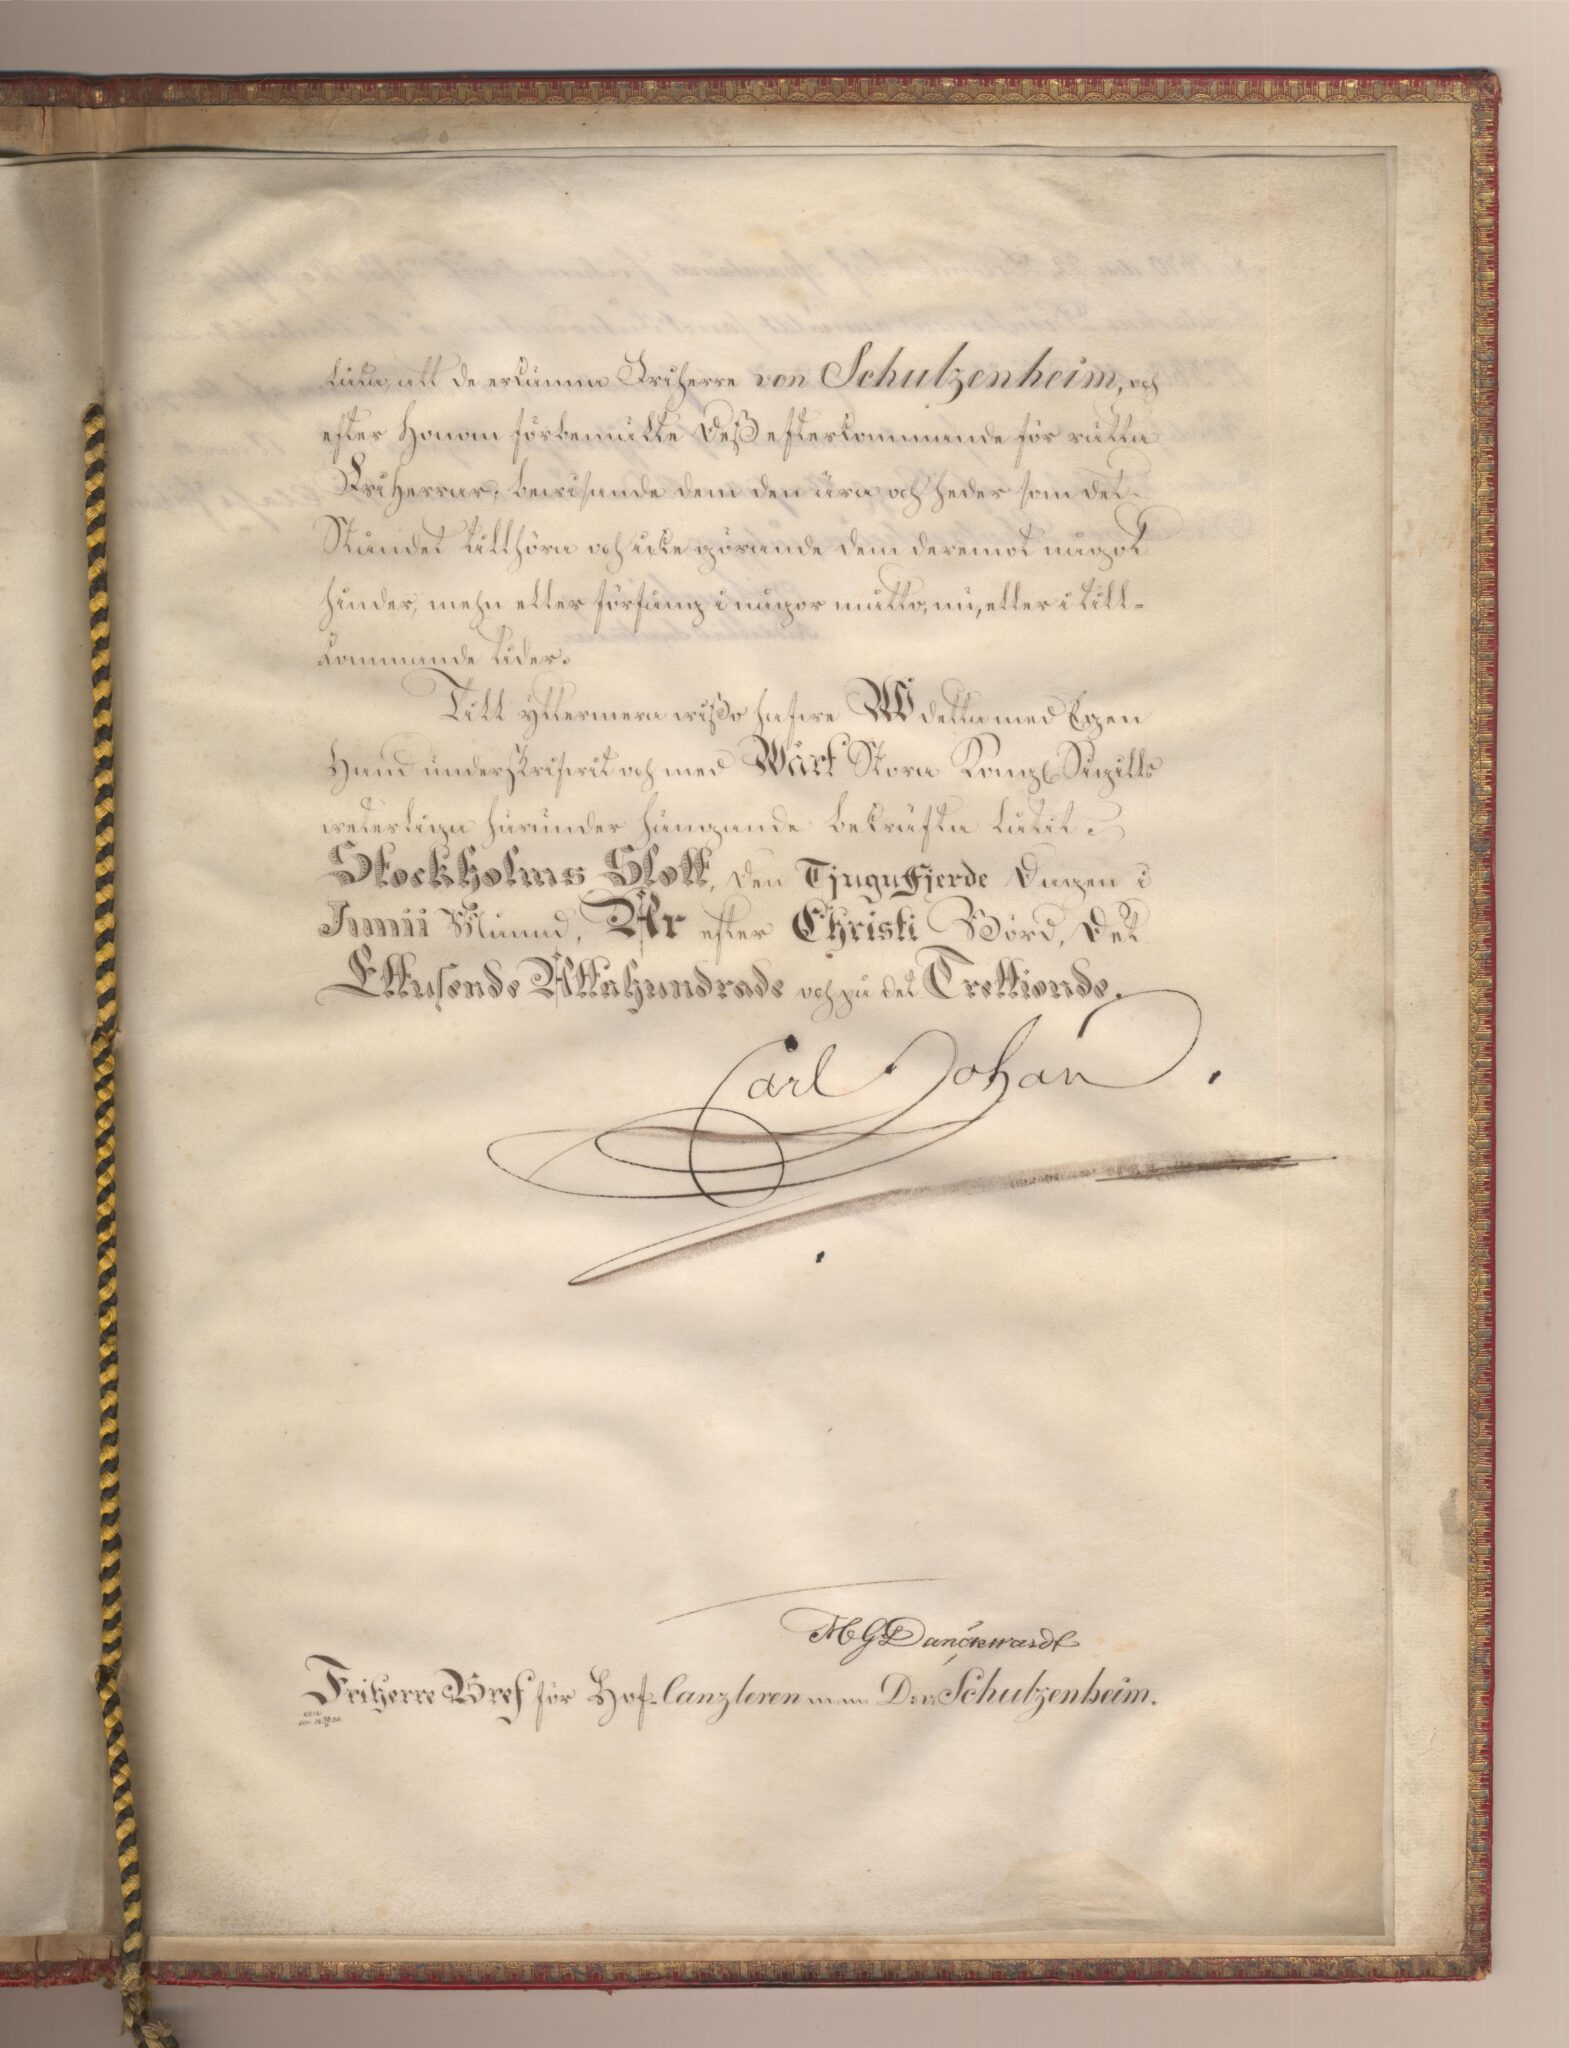 låta, att de erkänna Friherre von Schultzenheim, och
efter Honom förbemälte Deß efterkommande för rätta
Friherrar, bewisande dem den ära och heder som det
Ståndet tillhöra och icke görande dem deremot något
hinder, mehn eller förfång i någor måtto, nu, eller i till-
kommande tider.
Till yttermera wißo hafwe Wi detta med Egen
Hand underskrifwit och med Wårt Stora Kongl. Sigill
weterliga härunder hängande bekräfta låtit.
Stockholms Slott, den TjuguFjerde Dagen i
Junii Månad, År efter Christi Börd, Det
Ettusende Åttahundrade och på det Trettionde.
Carl Johan
A G Danckwardt
Friherre Bref för Hof-Canzleren m.m. D. v. Schultzenheim.